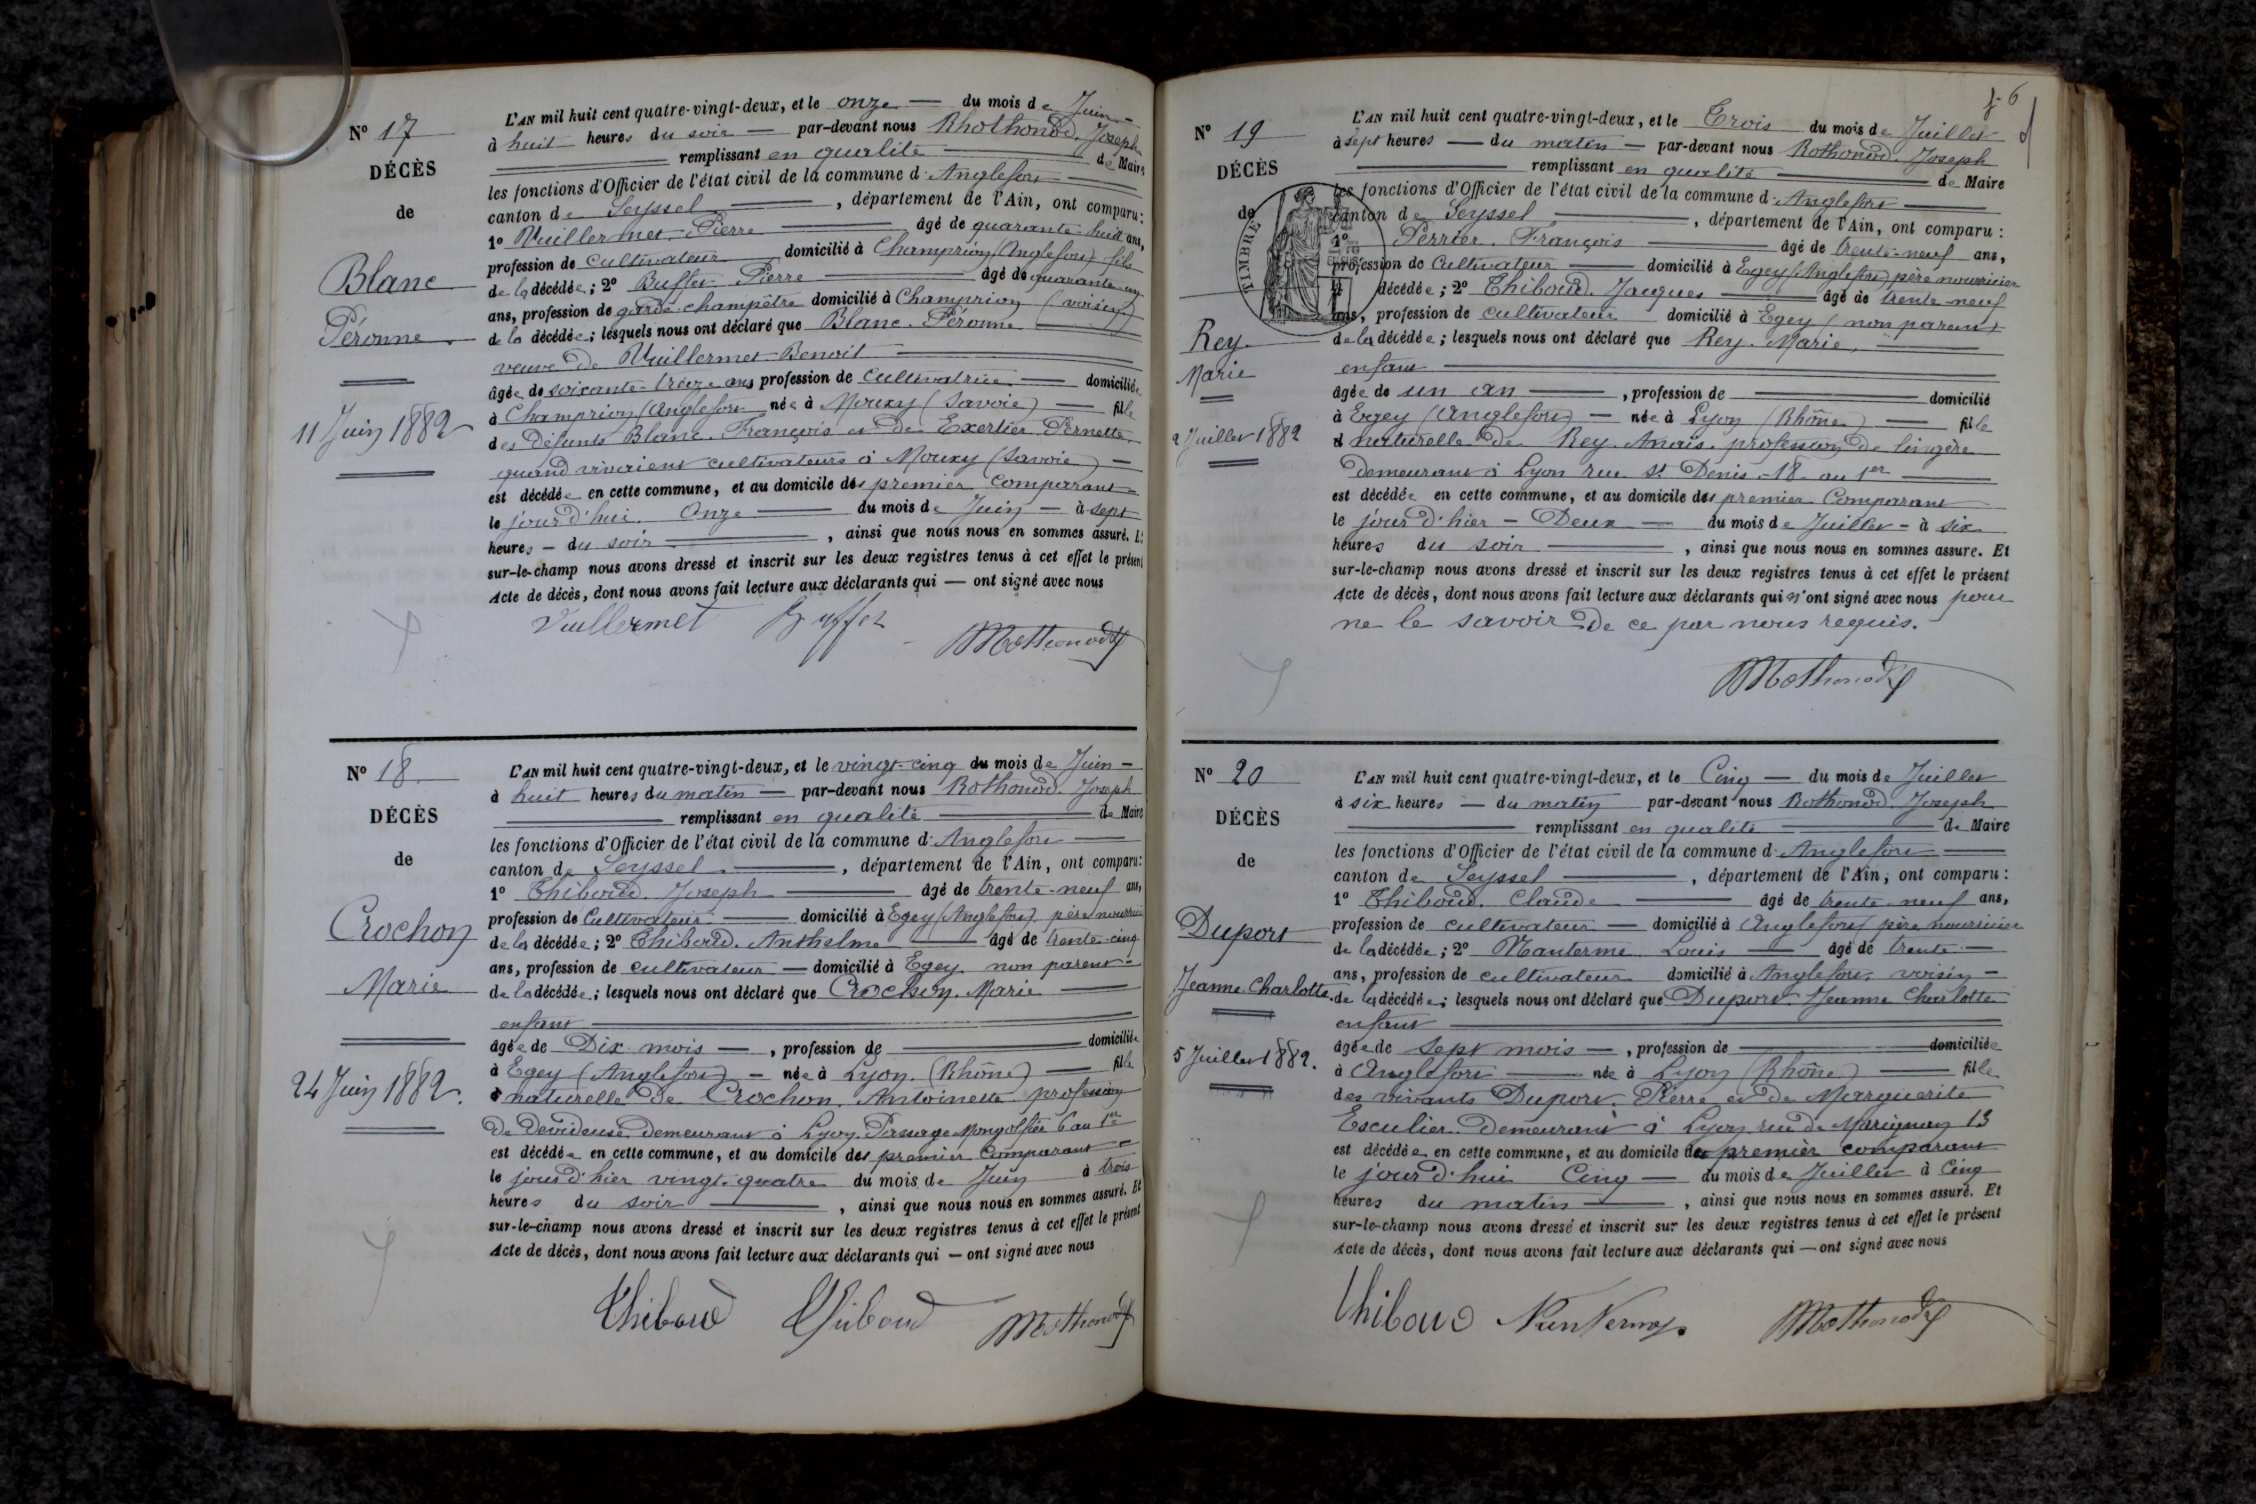 N° 17
DÉCÈS
de
Blanc
Péronne
11 Juin 1882
L'AN mil huit cent quatre-vingt-deux, et le onze du mois de Juin
à huit heures du soir par-devant nous Rhothonod, Joseph
remplissant en qualité de Maire
les fonctions d'Officier de l'état civil de la commune d'Anglefort
canton de Seyssel, département de l'Ain, ont comparu :
1° Vuillermet, Pierre âgé de quarante-huit ans,
profession de cultivateur domicilié à Champrion (Anglefort) fils
de la décédée ; 2° Buffet Pierre âgé de quarante un
ans, profession de garde-champêtre domicilié à Champrion (voisin)
de la décédée ; lesquels nous ont déclaré que Blanc. Péronne
veuve de Vuillermet Benoit
âgée de soixante-treize ans profession de cultivatrice domiciliée
à Champrion (Anglefort) née à Mouxy (Savoie) fille
des défunts Blanc. François et de Exertier Pernette
quand vivaient cultivateurs à Mouxy (Savoie)
est décédée en cette commune, et au domicile des premier Comparant
le jour d'hui Onze du mois de Juin à sept
heures du soir, ainsi que nous nous en sommes assuré. Et
sur-le-champ nous avons dressé et inscrit sur les deux registres tenus à cet effet le présent
Acte de décès, dont nous avons fait lecture aux déclarants qui — ont signé avec nous
Vuillermet Buffet Rothonod
N° 18
DÉCÈS
de
Crochon
Marie
24 Juin 1882.
L'AN mil huit cent quatre-vingt-deux, et le vingt-cinq du mois de Juin
à huit heures du matin par-devant nous Rothonod. Joseph
remplissant en qualité de Maire
les fonctions d'Officier de l'état civil de la commune d'Anglefort
canton de Seyssel, département de l'Ain, ont comparu :
1° Thiboud. Joseph âgé de trente-neuf ans,
profession de Cultivateur domicilié à Egey (Anglefort) père nourricier
de la décédée ; 2° Thiboud. Anthelme âgé de trente-cinq
ans, profession de cultivateur domicilié à Egey. non parent
de la décédée ; lesquels nous ont déclaré que Crochon. Marie
enfant
âgée de Dix mois, profession de domiciliée
à Egey (Anglefort) née à Lyon. (Rhône) fille
naturelle de Crochon. Antoinette profession
de Dévideuse demeurant à Lyon. Passage Mongolfier 6 au 1er
est décédée en cette commune, et au domicile des premier Comparant
le jour d'hier vingt-quatre du mois de Juin à trois
heures du soir, ainsi que nous nous en sommes assuré. Et
sur-le-champ nous avons dressé et inscrit sur les deux registres tenus à cet effet le présent
Acte de décès, dont nous avons fait lecture aux déclarants qui — ont signé avec nous
Thiboud Thiboud Rothonod
6
N° 19
DÉCÈS
de
TIMBRE
Rey
Marie
2 Juillet 1882
L'AN mil huit cent quatre-vingt-deux, et le Trois du mois de Juillet
à sept heures du matin par-devant nous Rothonod. Joseph
remplissant en qualité de Maire
les fonctions d'Officier de l'état civil de la commune d'Anglefort
canton de Seyssel, département de l'Ain, ont comparu :
1° Perrier. François âgé de trente-neuf ans,
profession de Cultivateur domicilié à Egey (Anglefort) père nourricier
décédée ; 2° Thiboud. Jacques âgé de trente-neuf
ans, profession de cultivateur domicilié à Egey (non parent)
de la décédée ; lesquels nous ont déclaré que Rey. Marie,
enfant
âgée de un an, profession de domicilié
à Egey (Anglefort) née à Lyon (Rhône) fille
naturelle de Rey. Anaïs. profession de lingère
demeurant à Lyon rue St Denis 18 au 1er
est décédée en cette commune, et au domicile des premier Comparant
le jour d'hier Deux du mois de Juillet à six
heures du soir, ainsi que nous nous en sommes assuré. Et
sur-le-champ nous avons dressé et inscrit sur les deux registres tenus à cet effet le présent
Acte de décès, dont nous avons fait lecture aux déclarants qui n'ont signé avec nous pour
ne le savoir de ce par nous requis.
Rothonod
N° 20
DÉCÈS
de
Duport
Jeanne Charlotte.
5 Juillet 1882.
L'AN mil huit cent quatre-vingt-deux, et le Cinq du mois de Juillet
à six heures du matin par-devant nous Rothonod. Joseph
remplissant en qualité de Maire
les fonctions d'Officier de l'état civil de la commune d'Anglefort
canton de Seyssel, département de l'Ain, ont comparu :
1° Thiboud. Claude âgé de trente-neuf ans,
profession de cultivateur domicilié à Anglefort père nourricier
de la décédée ; 2° Nanterme Louis âgé de trente
ans, profession de cultivateur domicilié à Anglefort. voisin
de la décédée ; lesquels nous ont déclaré que Duport. Jeanne Charlotte
enfant
âgée de sept mois, profession de domiciliée
à Anglefort née à Lyon (Rhône) fille
des vivants Duport. Pierre et de Marguerite
Esculier. Demeurant à Lyon rue de Marignan 13
est décédée en cette commune, et au domicile du premier comparant
le jour d'hui Cinq du mois de Juillet à Cinq
heures du matin, ainsi que nous nous en sommes assuré. Et
sur-le-champ nous avons dressé et inscrit sur les deux registres tenus à cet effet le présent
Acte de décès, dont nous avons fait lecture aux déclarants qui — ont signé avec nous
Thiboud Nanterme Rothonod